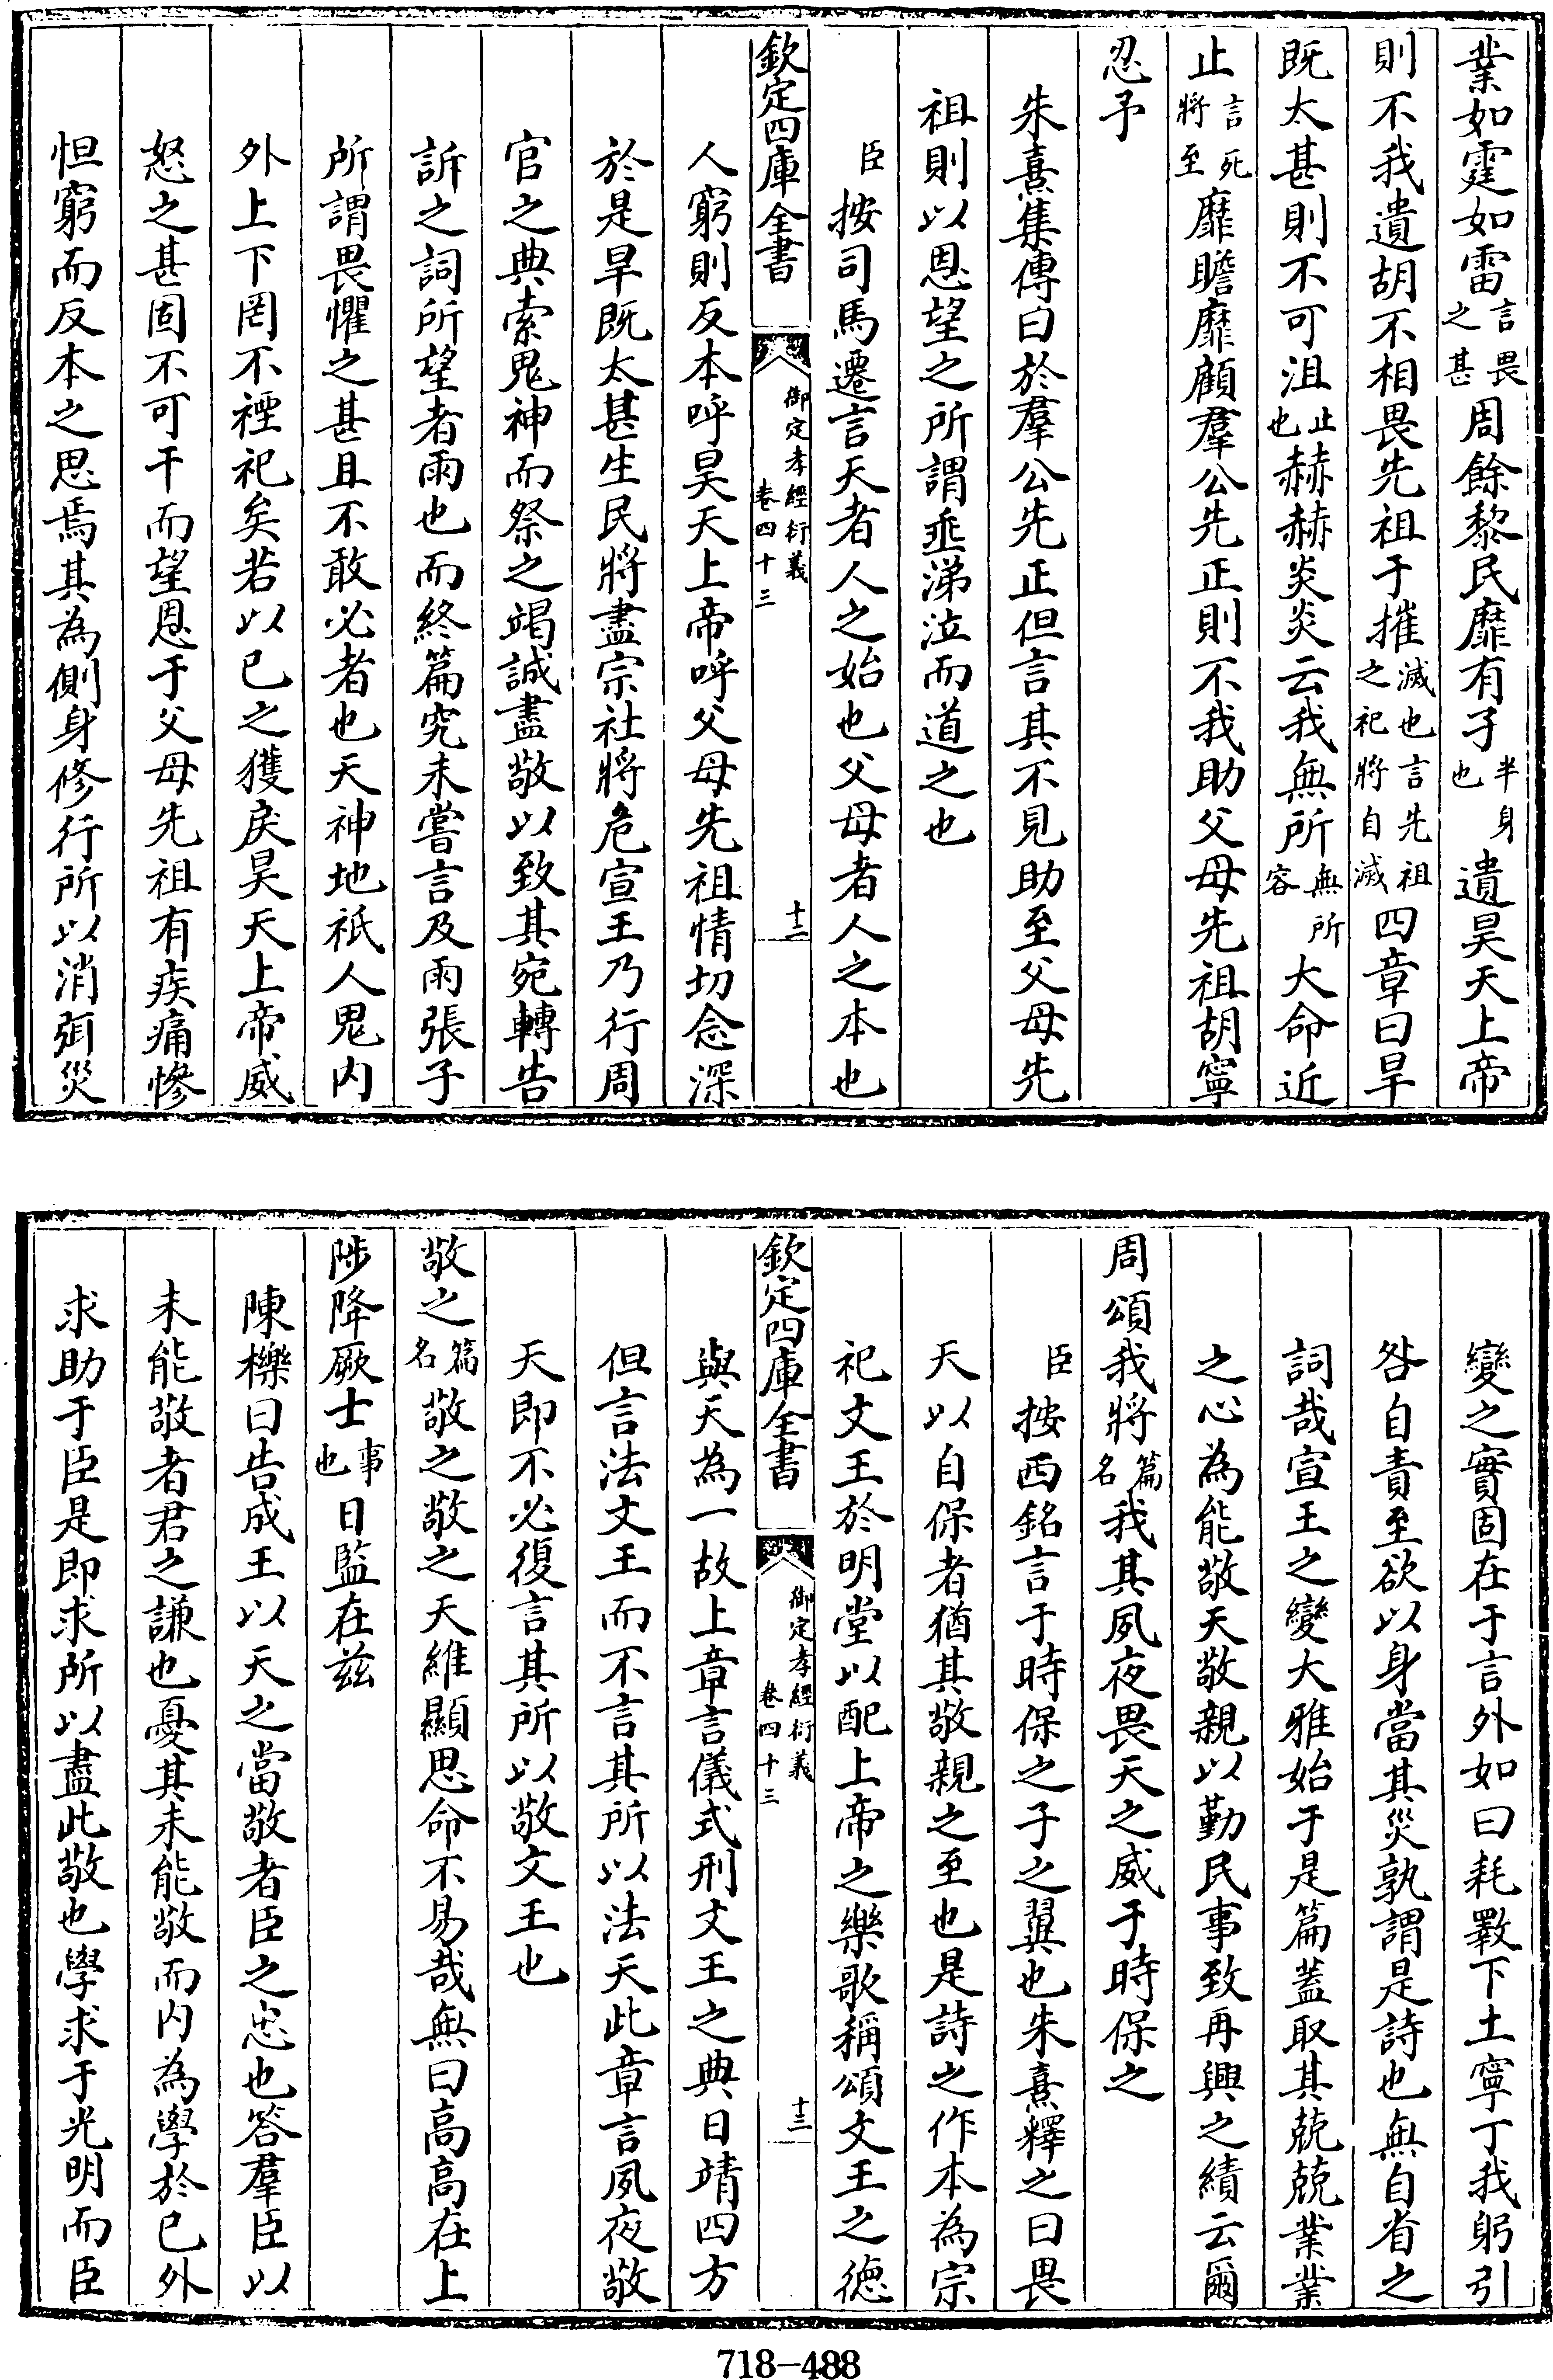 業如霆如雷言畏之甚周餘黎民靡有孑半身也遺昊天上帝
則不我遺胡不相畏先祖于摧滅也言先祖之祀將自滅四章曰旱
既太甚則不可沮止也赫赫炎炎云我無所無所容大命近
止言死將至靡瞻靡顧羣公先正則不我助父母先祖胡寧
忍予
朱熹集傳曰於羣公先正但言其不見助至父母先
祖則以恩望之所謂垂涕泣而道之也
臣按司馬遷言天者人之始也父母者人之本也
欽定四庫全書 御定孝經衍義 卷四十三 十二
人窮則反本呼昊天上帝呼父母先祖情切念深
於是旱既太甚生民將盡宗社將危宣王乃行周
官之典索鬼神而祭之竭誠盡敬以致其宛轉告
訴之詞所望者雨也而終篇究未嘗言及雨張子
所謂畏懼之甚且不敢必者也天神地祇人鬼内
外上下罔不禋祀矣若以已之獲戾昊天上帝威
怒之甚固不可干而望恩于父母先祖有疾痛慘
怛窮而反本之思焉其為側身修行所以消弭災
變之實固在于言外如曰耗斁下土寧丁我躬引
咎自責至欲以身當其災孰謂是詩也無自省之
詞哉宣王之變大雅始于是篇蓋取其兢兢業業
之心為能敬天敬親以勤民事致再興之績云爾
周頌我將篇名我其夙夜畏天之威于時保之
臣按西銘言于時保之子之翼也朱熹釋之曰畏
天以自保者猶其敬親之至也是詩之作本為宗
祀文王於明堂以配上帝之樂歌稱頌文王之德
欽定四庫全書 御定孝經衍義 卷四十三 十三
與天為一故上章言儀式刑文王之典日靖四方
但言法文王而不言其所以法天此章言夙夜敬
天即不必復言其所以敬文王也
敬之篇名敬之敬之天維顯思命不易哉無曰高高在上
陟降厥士事也日監在兹
陳櫟曰告成王以天之當敬者臣之忠也答羣臣以
未能敬者君之謙也憂其未能敬而内為學於已外
求助于臣是即求所以盡此敬也學求于光明而臣
718-488